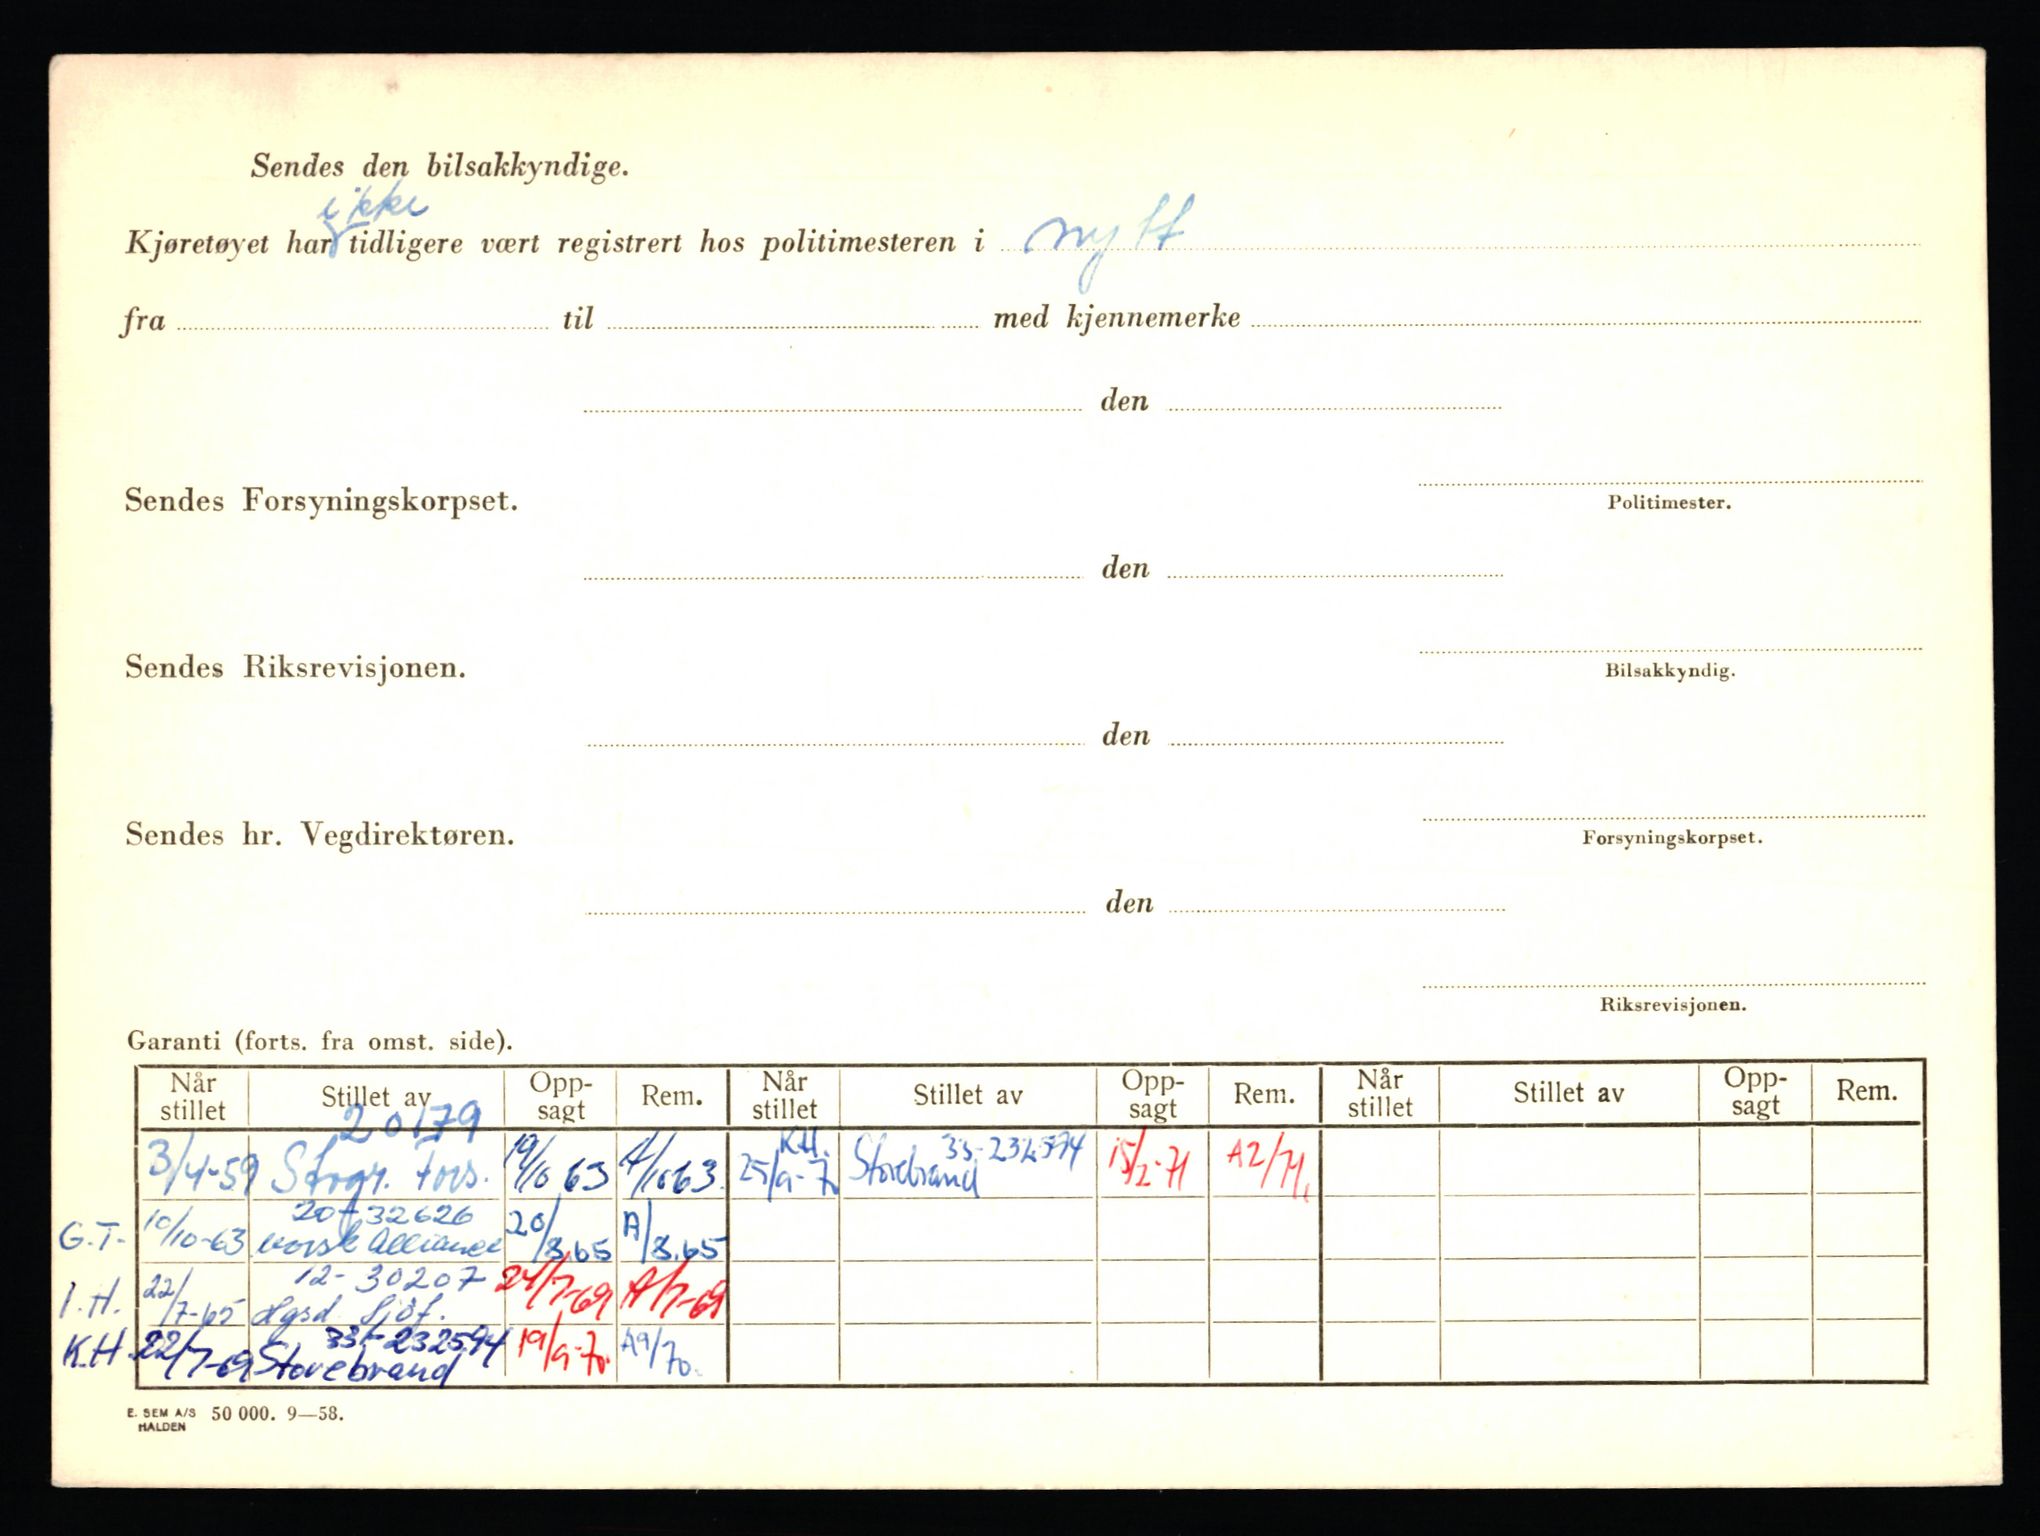 Sendes den bilsakkyndige.
ikke
Kjøretøyet har tidligere vært registrert hos politimesteren i nytt
fra til med kjennemerke
den
Sendes Forsyningskorpset.
Politimester.
den
Sendes Riksrevisjonen.
Bilsakkyndig.
den
Sendes hr. Vegdirektøren.
Forsyningskorpset.
den
Riksrevisjonen.
Garanti (forts. fra omst. side).
Når stillet Stillet av Opp-sagt Rem. Når stillet Stillet av Opp-sagt Rem. Når stillet Stillet av Opp-sagt Rem.
20179 K.H. 33-232574
3/4-59 Storgr. Fors. 19/10 63 A/10 63. 25/9-70 Storebrand 15/2-71 A2/71
20-32626
G.T. 10/10-63 Norsk Alliance 20/8.65 A/8.65
12-30207
I.H. 22/7-65 Hgsd. Sjøf. 24/7-69 A/7-69
33-232594
K.H. 22/7-69 Storebrand 19/9-70. A9/70.
E. SEM A/S 50 000. 9—58.
HALDEN